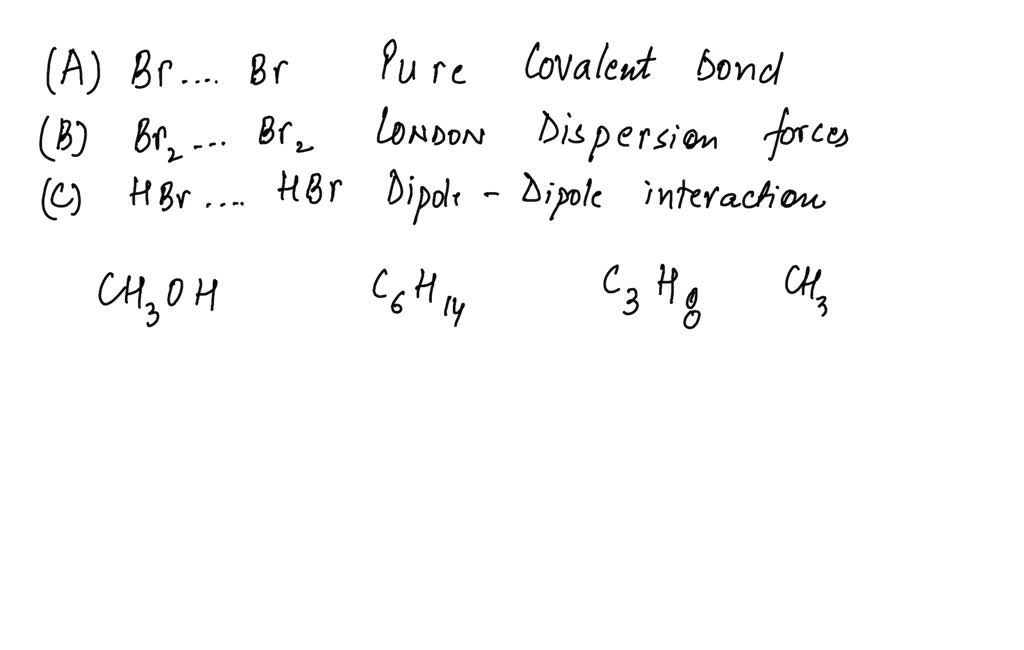 (A) Br.... Br Pure Covalent bond
(B) Br₂ --.. Br₂ LONDON Dispersion forces
(C) HBr .... HBr Dipole - Dipole interaction
CH₃OH C₆H₁₄ C₃H₈ CH₃